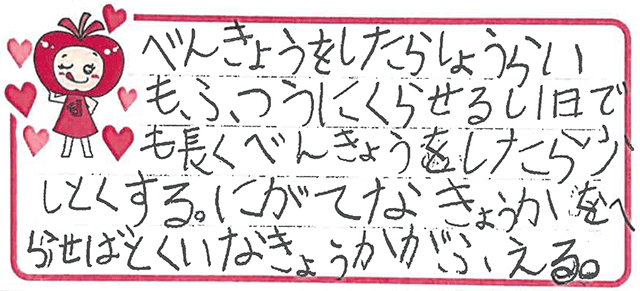 べんきょうをしたらしょうらい
も、ふ、つうにくらせるし1日で
も長くべんきょうをしたら少
しとくする。にがてなきょうかをへ
らせばとくいなきょうかがふえる。